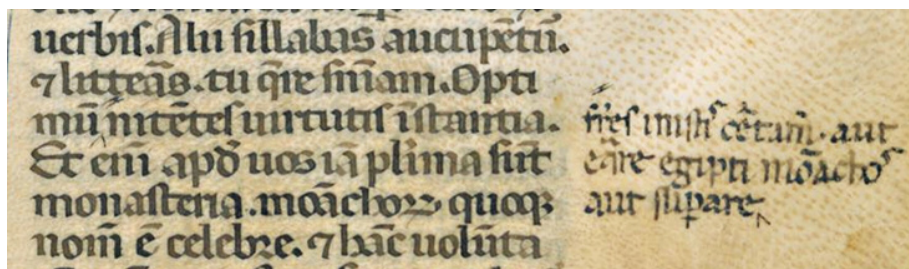 uerbis. Alii sillabas aucupẽtũ.
⁊ litteãs. tu q̃re sñiam. Opti
mũ nitẽtes uirtutis ĩstantia.
Et eĩ apđ uos iã pl̃ima sũt
monasteria. moãchoꝝ quoqꝫ
nom̃ ẽ celebre. ⁊ hãc uolũta
fr̃es inistis cẽtam̃. aut
eq̃re egipti moãchos
aut supare